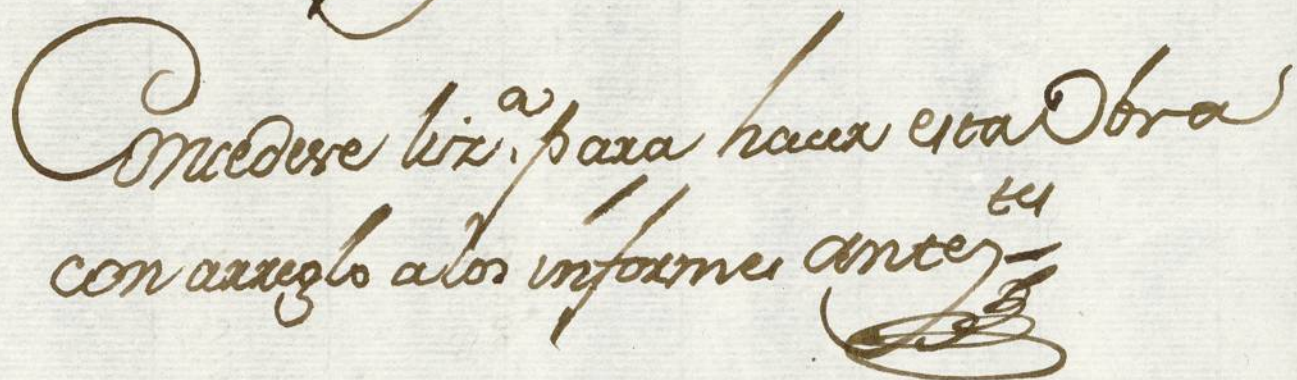 Concedese liz.ª para hacer esta Obra
con arreglo a los informes antez.tes